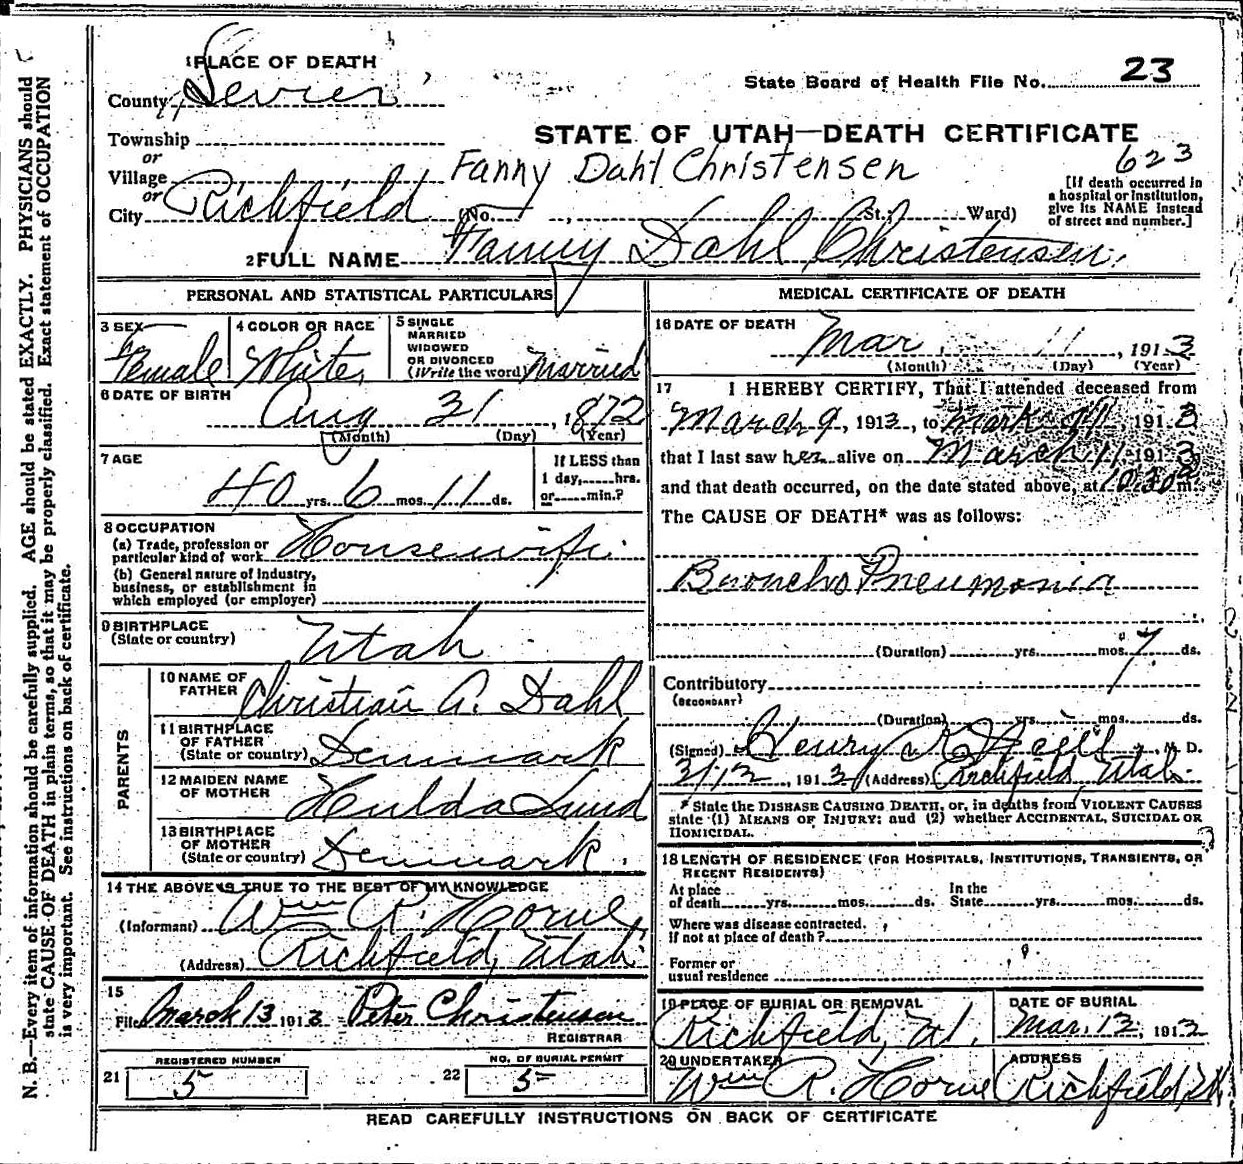 1 PLACE OF DEATH
County Sevier
State Board of Health File No. 23
Township
STATE OF UTAH—DEATH CERTIFICATE
or
Village
Fanny Dahl Christensen
623
or
City Richfield (No. , St.; Ward)
[If death occurred in a hospital or institution, give its NAME instead of street and number.]
2 FULL NAME Fanny Dahl Christensen.
PERSONAL AND STATISTICAL PARTICULARS
3 SEX Female
4 COLOR OR RACE White
5 SINGLE MARRIED WIDOWED OR DIVORCED (Write the word) Married
6 DATE OF BIRTH
Aug 31, 1872
(Month) (Day) (Year)
7 AGE
40 yrs. 6 mos. 11 ds.
If LESS than 1 day, hrs. or min.?
8 OCCUPATION
(a) Trade, profession or particular kind of work Housewife
(b) General nature of industry, business, or establishment in which employed (or employer)
9 BIRTHPLACE
(State or country) Utah
PARENTS
10 NAME OF FATHER Christian A. Dahl
11 BIRTHPLACE OF FATHER (State or country) Denmark
12 MAIDEN NAME OF MOTHER Hulda Lund
13 BIRTHPLACE OF MOTHER (State or country) Denmark.
14 THE ABOVE IS TRUE TO THE BEST OF MY KNOWLEDGE
(Informant) Wm R. Horne
(Address) Richfield, Utah
15
Filed March 13 1913 Peter Christensen
REGISTRAR
REGISTERED NUMBER
21 5
NO. OF BURIAL PERMIT
22 5
MEDICAL CERTIFICATE OF DEATH
16 DATE OF DEATH
Mar 11, 1913
(Month) (Day) (Year)
17 I HEREBY CERTIFY, That I attended deceased from
March 9, 1913, to 11, 1913
that I last saw her alive on March 11, 1913
and that death occurred, on the date stated above, at m.
The CAUSE OF DEATH* was as follows:
Broncho Pneumonia
(Duration) yrs. mos. 7 ds.
Contributory
(SECONDARY)
(Duration) yrs. mos. ds.
(Signed) Henry , M. D.
3/12, 1913 (Address) Richfield, Utah
* State the DISEASE CAUSING DEATH, or, in deaths from VIOLENT CAUSES
state (1) MEANS OF INJURY; and (2) whether ACCIDENTAL, SUICIDAL OR
HOMICIDAL.
18 LENGTH OF RESIDENCE (FOR HOSPITALS, INSTITUTIONS, TRANSIENTS, OR
RECENT RESIDENTS)
At place of death yrs. mos. ds. In the State yrs. mos. ds.
Where was disease contracted.
If not at place of death?
Former or
usual residence
19 PLACE OF BURIAL OR REMOVAL
Richfield, Ut.
DATE OF BURIAL
Mar. 13, 1913
20 UNDERTAKER
Wm R. Horne
ADDRESS
Richfield, Ut.
READ CAREFULLY INSTRUCTIONS ON BACK OF CERTIFICATE
N. B.—Every item of information should be carefully supplied. AGE should be stated EXACTLY. PHYSICIANS should
state CAUSE OF DEATH in plain terms, so that it may be properly classified. Exact statement of OCCUPATION
is very important. See instructions on back of certificate.